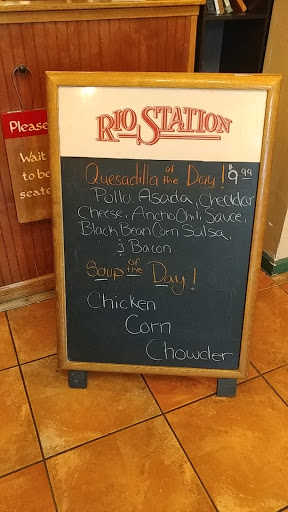 Please
Wait
to be
seate
RIO STATION
Quesadilla of the Day! $9.99
Pollo Asada, Cheddar
Cheese, Ancho Chili Sauce,
Black Bean Corn Salsa,
& Bacon
Soup of the Day!
Chicken
Corn
Chowder